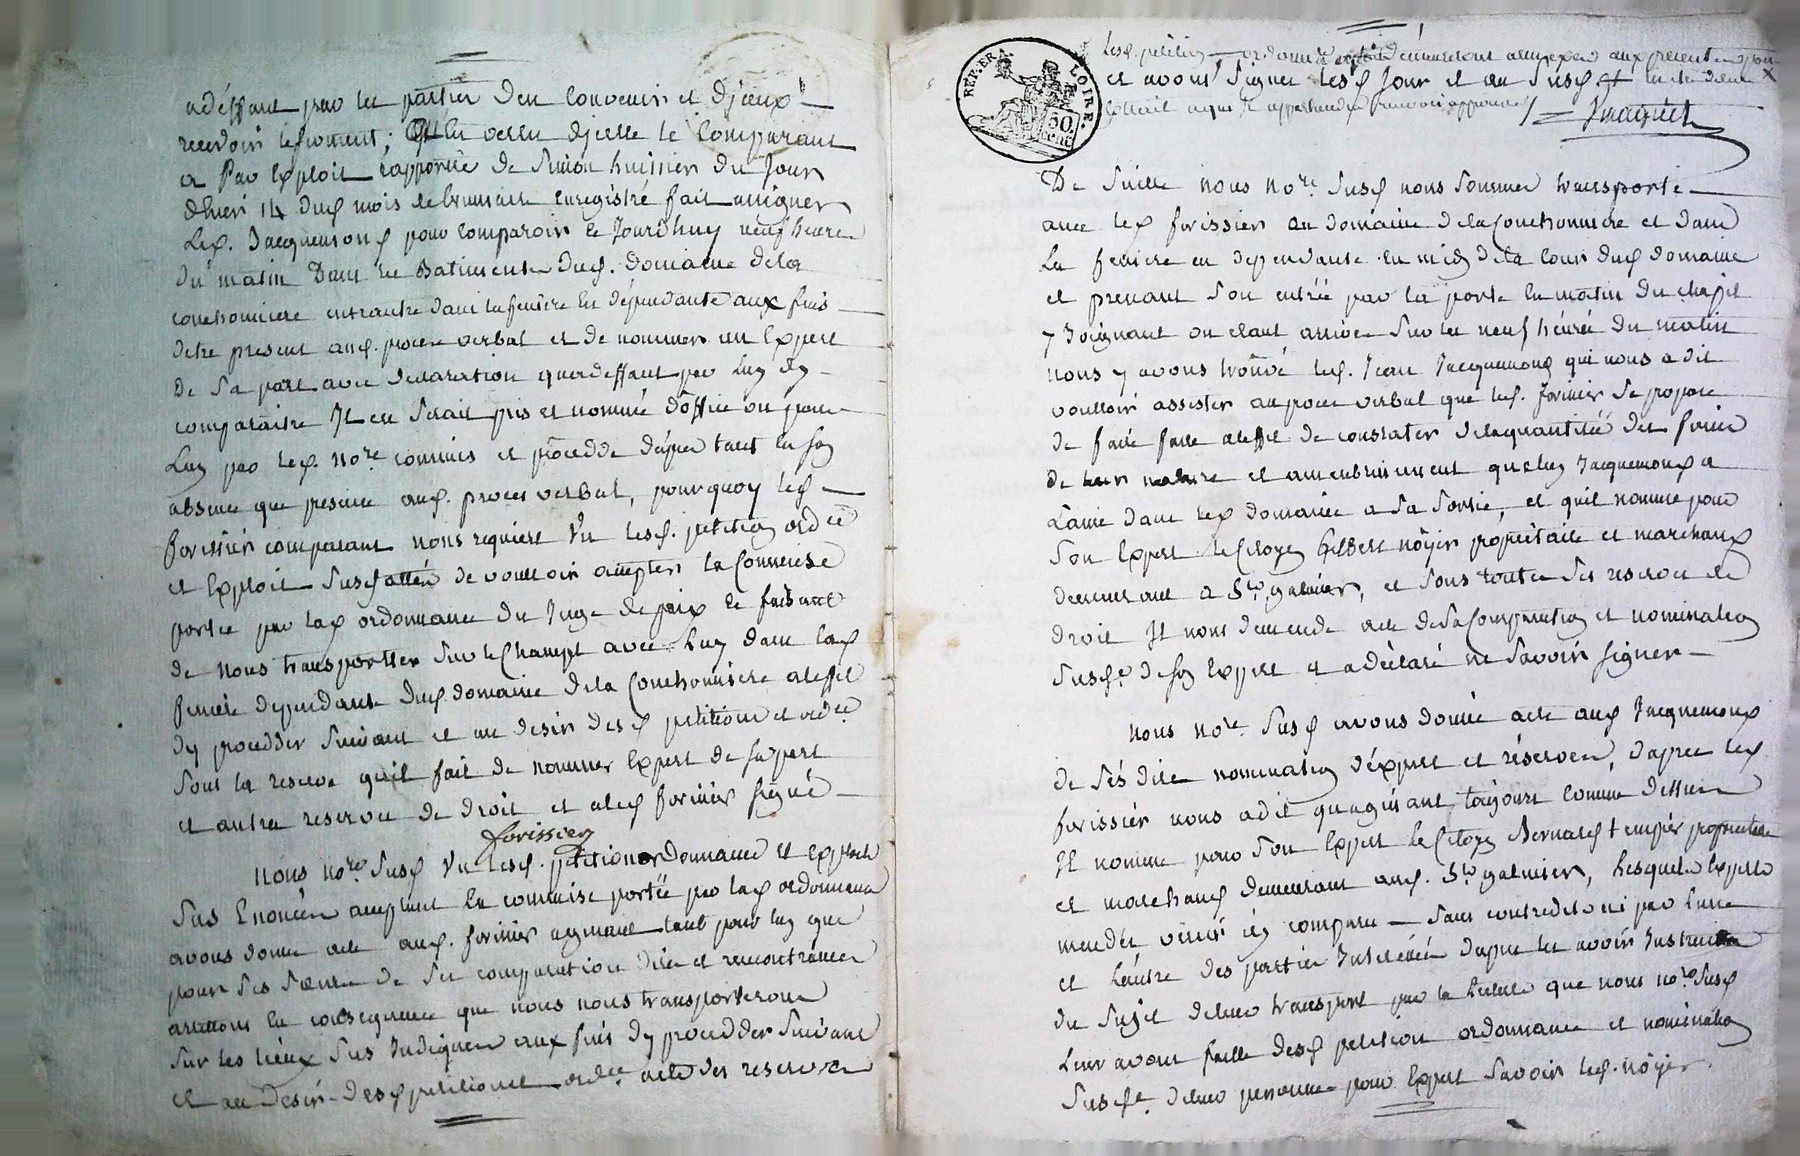 adéffaut par les parties den convenir et djceux
recevoir le serment; En vertu djcelle le Comparant
a par Exploit rapporté de Simon huissier du Jour
dhier 14 dud mois de brumaire Enregistré fait assigner
Led. Jacquemond pour Comparoir ce Jourdhuy neuf heures
du matin Dans les Batiments dud. domaine dela
conchonniere entrautre dans la feniere En dépendante aux fins
detre present aud. proces verbal et de nommer un Expert
de sa part avec declaration que deffaut par Luy dy
comparaitre Il en serait pris et nommé doffice un pour
Luy par led. no.re commis et procedé dapres tant En son
absence que presence aud. proces verbal, pourquoy led
forissier comparant nous requiert Vu lesd. petition ordce
et Exploit susd de vouloir accepter la Commise
portée par lad ordonnance du Juge de paix Ce faisant
de nous transportter sur le Champt avec Luy dans lad
feniere dependante dud domaine dela Conchonniere aleffet
dy proceder suivant et au desir desd petitions et ordce
sous la reserve quil fait de nommer Expert de sa part
et autres reserves de droit et aled forissier signé
forissier
Nous no.re susd Vu lesd. petition ordonnance et Exploit
sus Enoncés acceptant la commise portée par lad ordonnance
avons donné acte aud. forissier agissant tant pour luy que
pour ses sœurs de ses comparution dires et remontrances
arrettons En consequence que nous nous transporterons
sur les lieux sus Indiqués aux fins dy proceder suivant
et au desir desd petition et ordce acte des reserves
REP. FR.
LOIRE.
50. CENT
Lesd. petition ordonnance
et avons signé lesd Jour et an susd
Jmaginet
De suitte nous no.re susd nous sommes transporté
avec led forissier au domaine dela Conchonniere et dans
La feniere en dependante En midy de la cour dud domaine
et prenant son entrée par la porte En matin du chapit
y Joignant ou etant arrivés sur les neuf heures du matin
nous y avons trouvé led. Jean Jacquemond qui nous a dit
vouloir assister au proces verbal que led. forissier se propose
de faire faire aleffet de constater dela quantité des foins
de leur nature et amenbrinement que luy Jacquemond a
Laissé dans led domaine a sa sortie, et quil nomme pour
son Expert le Citoyen Gilbert nôyer propriétaire et marchand
demeurant a St. galmier, et sous toutes ses reserves de
droit Il nous demande acte de sa Comparution et nomination
susd.e de son Expert et a déclaré ne savoir signer
Nous no.re susd avons donné acte aud Jacquemond
de sés dires nomination dexpert et réserves, dapres led
forissier nous a dit quagissant toujours comme dessus
Il nomme pour son Expert le Citoyen Bernard tempier propriétaire
et marchand demeurant aud. St. galmier, Lesquels Experts
mandés venir icy comparu sans contredit ni par lune
et lautre des parties Interessées dapres les avoir Instruits
du sujet deleur transport par la lecture que nous no.re susd
Leur avons faitte desd petition ordonnance et nomination
susd.e deleur personne pour Expert savoir led. nôyer